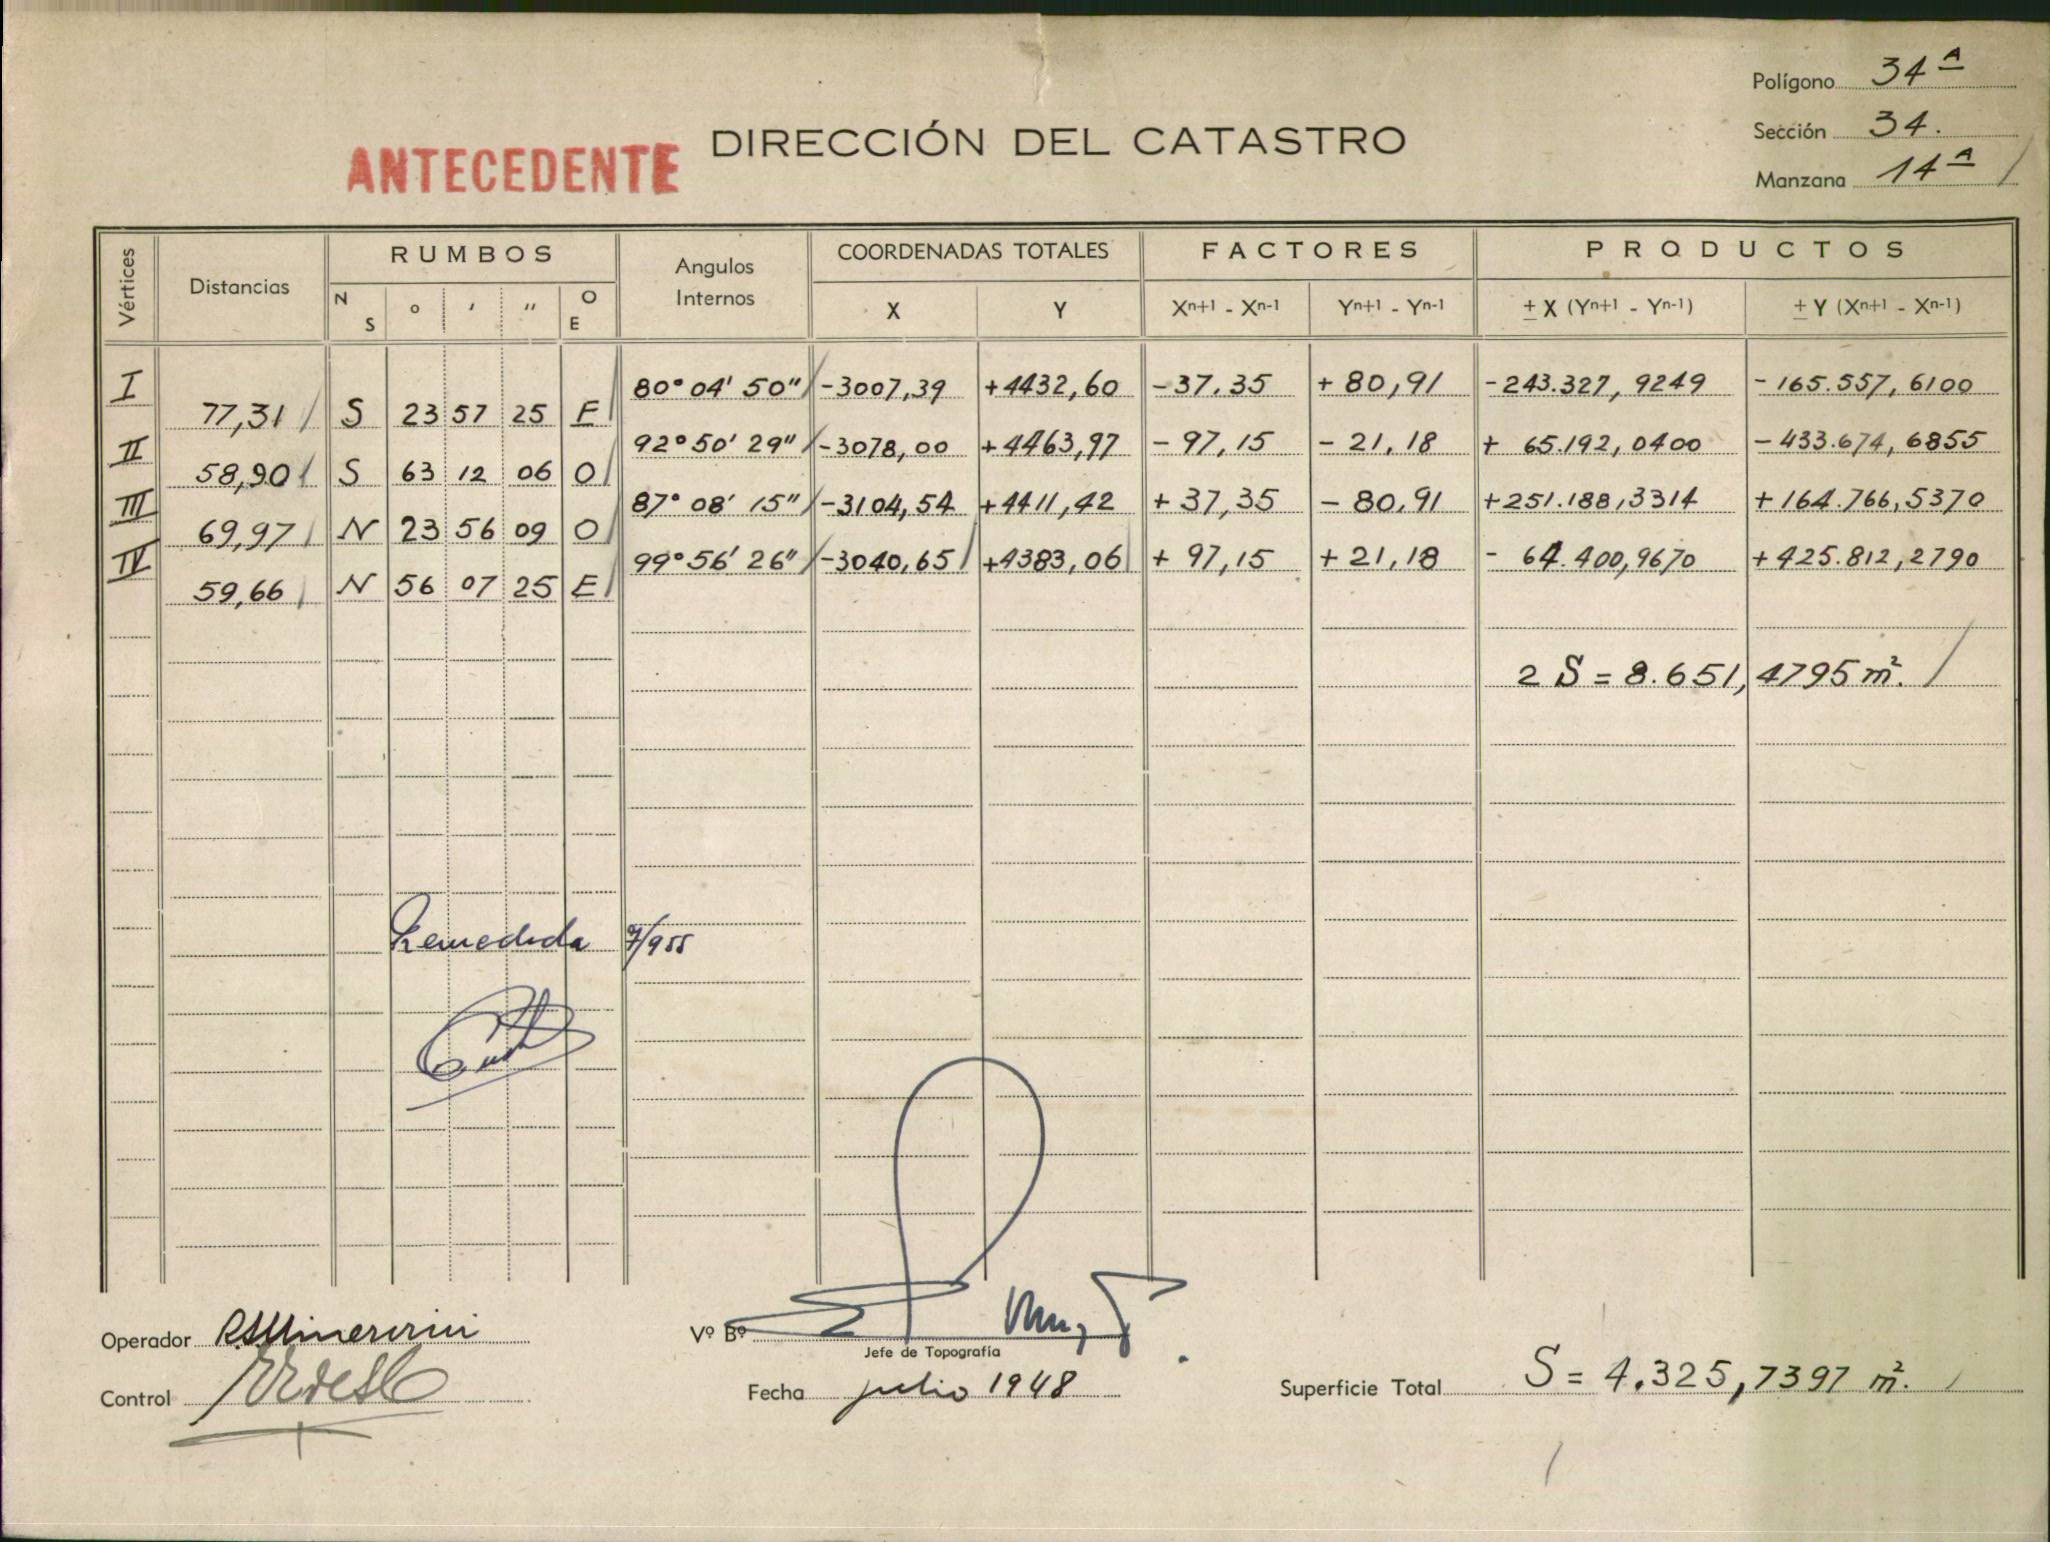 Polígono 34ᴬ
Sección 34.
Manzana 14ᴬ
ANTECEDENTE
DIRECCIÓN DEL CATASTRO
Vértices Distancias RUMBOS Angulos Internos COORDENADAS TOTALES FACTORES PRODUCTOS
N S ° ' " O E X Y Xⁿ⁺¹ - Xⁿ⁻¹ Yⁿ⁺¹ - Yⁿ⁻¹ ± X (Yⁿ⁺¹ - Yⁿ⁻¹) ± Y (Xⁿ⁺¹ - Xⁿ⁻¹)
I 80° 04' 50" -3007,39 +4432,60 -37,35 +80,91 -243.327,9249 -165.557,6100
77,31 S 23 57 25 E
II 92° 50' 29" -3078,00 +4463,97 -97,15 -21,18 + 65.192,0400 -433.674,6855
58,90 S 63 12 06 O
III 87° 08' 15" -3104,54 +4411,42 +37,35 -80,91 +251.188,3314 +164.766,5370
69,97 N 23 56 09 O
IV 99° 56' 26" -3040,65 +4383,06 +97,15 +21,18 - 64.400,9670 +425.812,2790
59,66 N 56 07 25 E
2 S = 8.651,4795 m².
Remedida 7/955
Operador
Vº Bº
Jefe de Topografía
Control
Fecha julio 1948
Superficie Total S = 4.325,7397 m².